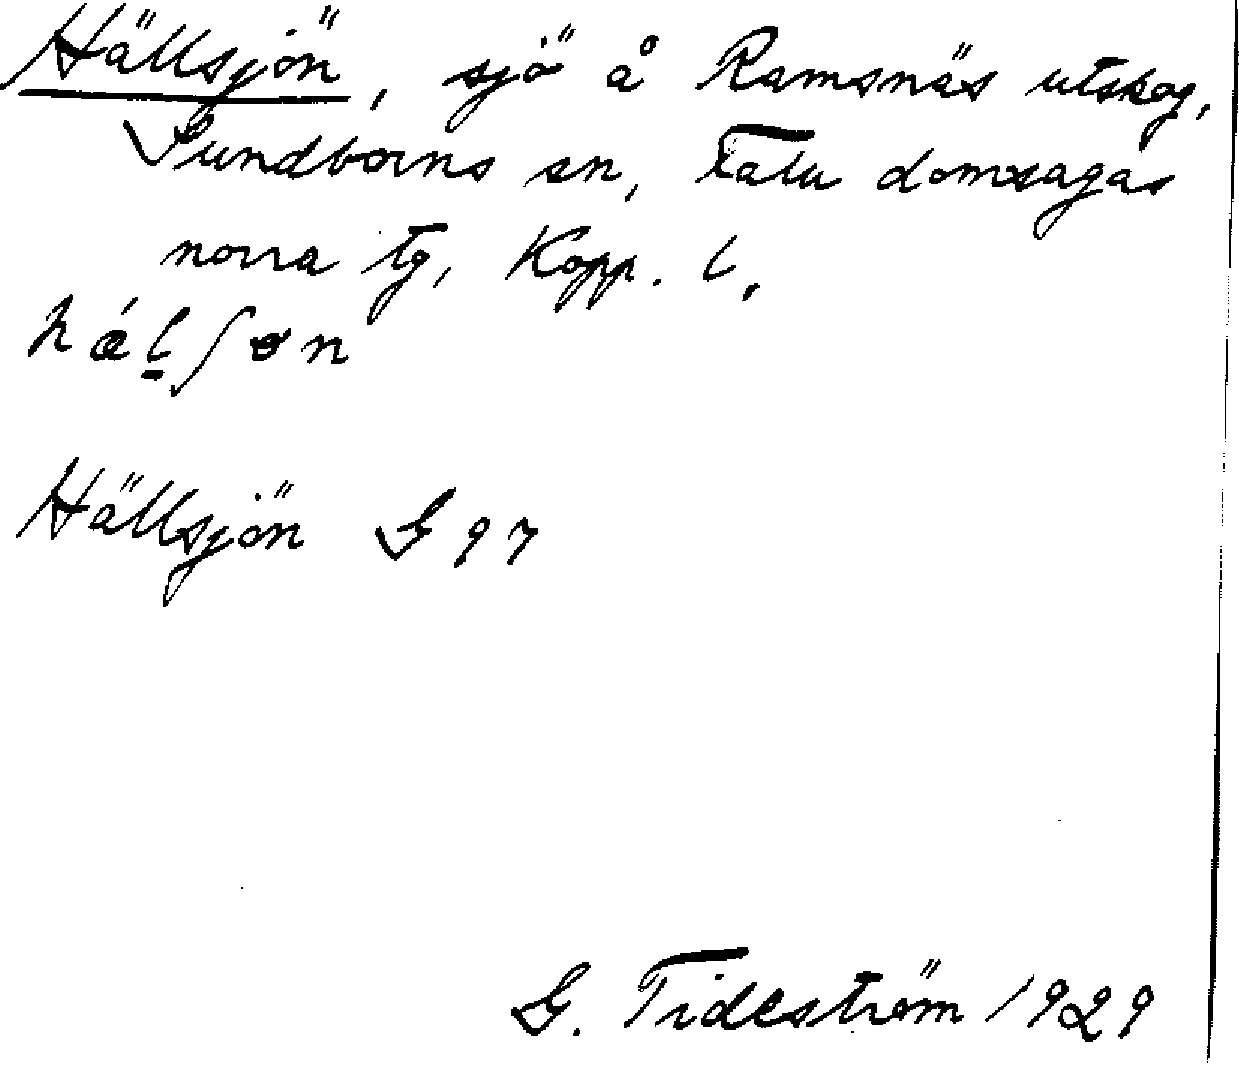 Hällsjön, sjö å Ramsnäs utskog,
Sundborns sn, Falu domsagas
norra tg, Kopp. l.
hǽl̠ʃøn
Hällsjön G 97
G. Tideström 1929